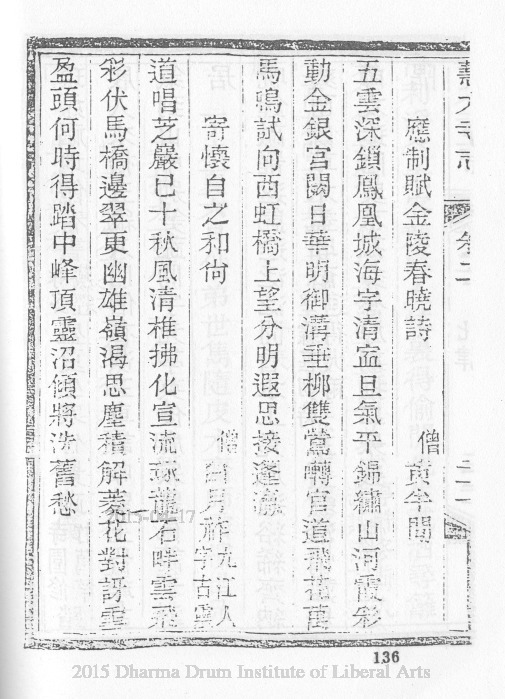 卷二
應制賦金陵春曉詩
僧
五雲深鎖鳳凰城海宇清寍旦氣平錦繡山河霞彩
動金銀宮闕日華明御溝垂柳雙鶯轉官道飛花萬
馬鳴試向西虹橋上望分明遐思接蓬瀛
寄懷自之和尙
僧 九江人字古
道唱芝巖已十秋風清椎拂化宣流琢龍石畔雲飛
彩伏馬橋邊翠更幽雄嶺渴思塵積解菱花對訝雪
盈頭何時得踏中峰頂靈沼傾將洗舊愁
136
2015 Dharma Drum Institute of Liberal Arts